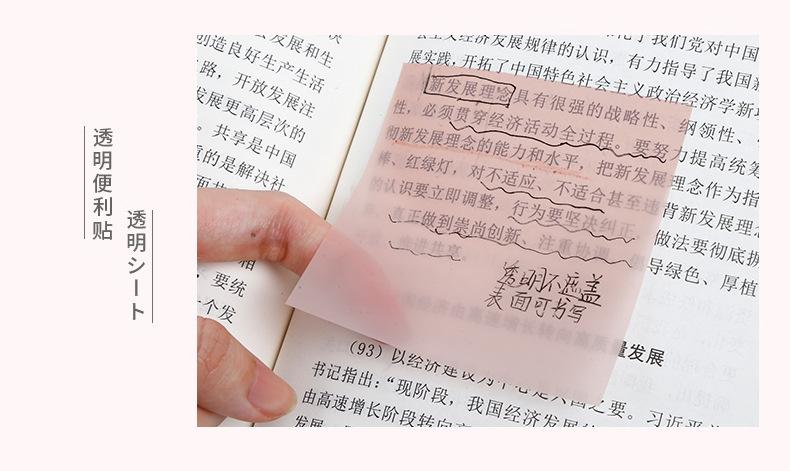 透明便利贴
透明シート
发展和生
创造良好生产生活
路，开放发展注
发展更高层次的
。共享是中国
的是解决社
相
，要统
一个发
会主义经济发展规律的认识，有力指导了我国
展实践，开拓了中国特色社会主义政治经济学新
新发展理念具有很强的战略性、纲领性、
性，必须贯穿经济活动全过程。要努力提高统筹
彻新发展理念的能力和水平，把新发展理念作为指
棒、红绿灯，对不适应、不适合甚至违背新发展理
的认识要立即调整，行为要坚决纠正，做法要彻底
真正做到崇尚创新、注重协调、倡导绿色、厚植
推进共享。
透明不遮盖
表面可书写
国经济由高速增长转向高质量发展
（93）以经济建设为中心是兴国之要。习近平
书记指出：“现阶段，我国经济发展
由高速增长阶段转向